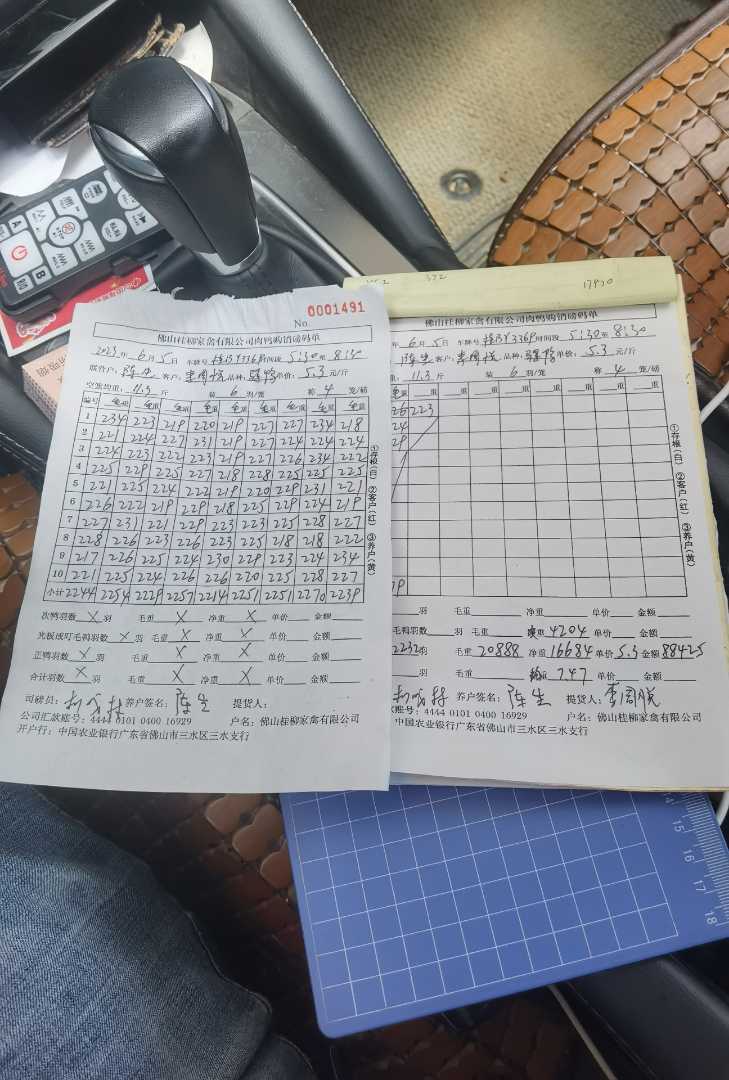 No. 0001491
佛山桂柳家禽有限公司肉鸭购销磅码单
2023年6月5日 车牌号桂BY336P时间段5:30至8:30
联养户：陈生 客户：李周悦 品种： 单价：5.3元/斤
空笼均重：11.3斤 装6羽/笼 称4笼/磅
编号 毛重 毛重 毛重 毛重 毛重 毛重 毛重 毛重 毛重
1 234 223 219 220 219 227 227 234 218
2 221 224 227 231 219 227 224 224 224
3 224 223 222 223 219 227 226 234 222
4 225 229 225 227 218 228 225 225 225
5 221 225 224 222 219 220 229 231 221
6 226 222 219 229 218 225 229 224 219
7 227 231 221 229 223 223 225 228 227
8 228 226 223 226 223 225 218 218 222
9 217 226 225 224 230 229 223 224 234
10 221 225 224 226 226 220 225 228 227
小计 2244 2254 2229 2257 2214 2251 2251 2270 2239
①存根(白) ②客户(红) ③养户(黄)
次鸭羽数X羽 毛重X 净重X 单价 金额
光板或叮毛鸭羽数X羽 毛重X 净重X 单价 金额
正鸭羽数X羽 毛重X 净重X 单价 金额
合计羽数X羽 毛重X 净重X 单价 金额
司磅员： 养户签名：陈生 提货人：
公司汇款账号：4444 0101 0400 16929 户名：佛山桂柳家禽有限公司
开户行：中国农业银行广东省佛山市三水区三水支行
372 17930
佛山桂柳家禽有限公司肉鸭购销磅码单
年6月5日 车牌号桂BY336P时间段5:30至8:30
陈生 客户：李周悦 品种： 单价：5.3元/斤
重：11.3斤 装6羽/笼 称4笼/磅
重 重 重 重 重 重 重 重
26 223
24
29
79
①存根(白) ②客户(红) ③养户(黄)
羽 毛重 净重 单价 金额
毛鸭羽数 羽 毛重 重4204 单价 金额
2232羽 毛重20888 净重16684 单价5.3 金额88425
羽 毛重 7.47 单价 金额
养户签名：陈生 提货人：李周悦
账号：4444 0101 0400 16929 户名：佛山桂柳家禽有限公司
中国农业银行广东省佛山市三水区三水支行
A
B
14
15
16
17
18